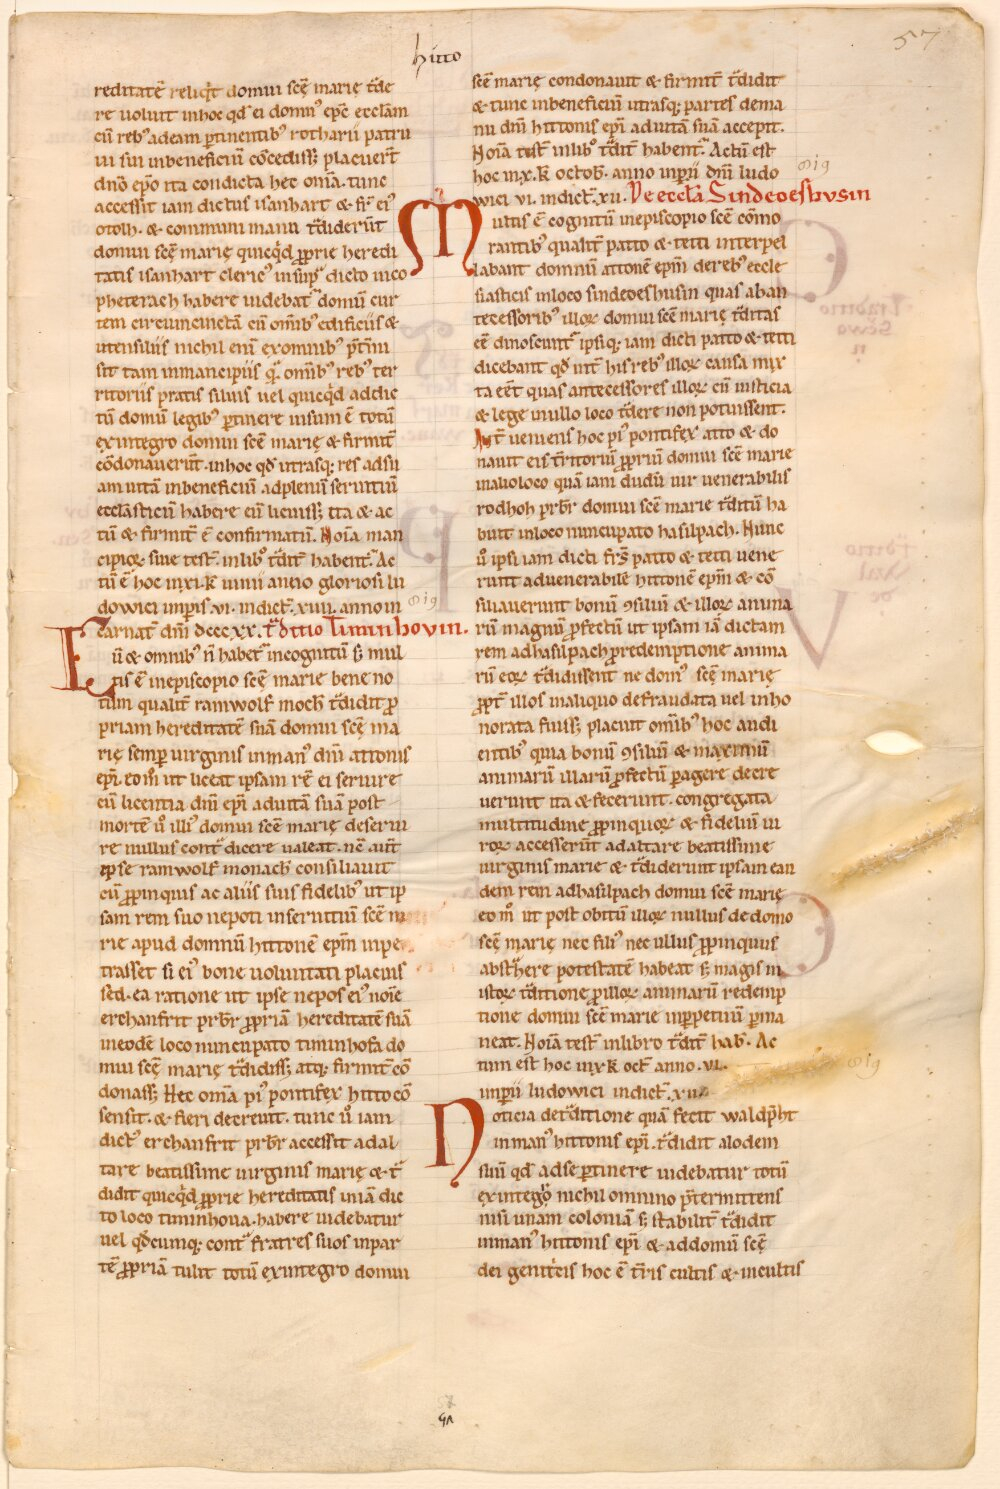 hitto
57
reditatē reliq̇t domui scē marię t̄de
re voluit inhoc qd̄ ei domn᾽ epc̄ ecclam
cū reb᾽ adeam ꝑtinentib᾽ rotharii patru
ui sui inbeneficiū cōcedissꝫ placuer̄t
dno epo ita condicta hec om̄a. tunc
accessit iam dictus isanhart & fr̄ ei᾽
otolh. & communi manu t̄diderūt
domui scē marię quicq̇d ꝓprie heredi
tatis isanhart cleric᾽ insup̄ dicto uico
pheterach habere uidebat᷑ domū cur
tem circumcinctā cū omīb᾽ edificiis &
utensiliis nichil eni exomnib᾽ p̄t̄mi
sit tam inmancipiis q̄ omīb᾽ reb᾽ ter
ritoriis pratis siluis uel quicq̇d addic
tū domū legib᾽ ꝑtinere uisum ē totū
exintegro domui scē marię & firmit̄
cōdonauerūt. inhoc qd̄ utrasqꝫ res adsu
am uitā inbeneficiū adpleniū seruitiū
ecclasticiū habere eū licuissꝫ ita & ac
tū & firmit̄ ē confirmatū. Noīa man
cipioꝝ siue test̄. inlib᾽ t̄dit̄ habent᷑. Ac
tū ē hoc in xi. k̄ iunii anno gloriosi lu
dowici imp̄is. vi. indict̄. xiiii. anno in
carnat̄ dn̄i dccc. xx. t̄ditio Timinhovin.
Eū & omnib᾽ n̄ habet᷑ incognitū sꝫ mul
tis ē inepiscopio scē marie bene no
tum qualit̄ ramwolf moch̄ t̄didit ꝓ
priam hereditatē suā domui scē ma
rię semꝑ uirginis inman᾽ dn̄i attonis
epi. eo m̊ ut liceat ipsam rē ei seruire
cū licentia dn̄i epi aduitā suā post
mortē u̇ illi᾽ domui scē marię deserui
re nullus cont̄ dicere ualeat. nē aūt
ipse ramwolf monach᾽ consiliauit
cū ꝓpinquis ac aliis suis fidelib᾽ ut ip
sam rem suo nepoti inseruitiū scē m
rie apud domnū hittonē epm̄ inpe
trasset si ei᾽ bone uoluntati placuis
sed. ea ratione ut ipse nepos ei᾽ noīe
erchanfrit prb̄r ꝓpriā hereditatē suā
ineodē loco nuncupato timinhofa do
mui scē marię t̄didissꝫ atqꝫ firmit̄ cō
donassꝫ. Hec om̄a pi᾽ pontifex hitto cō
sensit. & fieri decreuit. tunc u̇ iam
dict᾽ erchanfrit prb̄r accessit adal
tare beatissime uirginis marię & t̄
didit quicq̇d ꝓprie hereditatis iniā dic
to loco timinhoua. habere uidebatur
uel qd̄cumqꝫ cont̄ fratres suos inpar
tē ꝓpriā tulit totū exintegro domui
scē marię condonauit & firmit̄ t̄didit
& tunc inbeneficiū utrasqꝫ partes dema
nu dn̄i hittonis epi aduitā suā accepit.
Noīa test̄ inlib᾽ t̄dit̄ habent᷑. Actū est
hoc in x. k̄ octob̄. anno inp̄ii dn̄i ludo
wici vi. indict̄. xii. De eccłā Sindeoeshvsin
Multis ē cognitū inepiscopio scē cōmo
rantib᾽ qualit̄ patto & tetti interpel
labant domnū attonē epm̄ dereb᾽ eccle
siasticis inloco sindeoeshusin quas aban
tecessorib᾽ illoꝝ domui scē marię t̄ditas
eē dinoscunt᷑ ipsiqꝫ iam dicti patto & tetti
dicebant qd̄ int̄ his reb᾽ illoꝝ causa mix
ta eēt quas antecessores illoꝝ cū iusticia
& lege inullo loco t̄dere non potuissent.
Aūt̄ ueniens hoc pi᾽ pontifex atto & do
nauit eis t̄ritoriū ꝓpriū domui scē marie
inalio loco quā iam dudū uir uenerabilis
rodhoh prb̄r domui scē marie t̄ditū ha
buit inloco nuncupato hasilpach. Nunc
u̇ ipsi iam dicti frs̄ patto & tetti uene
runt aduenerabilē hittonē epm̄ & cō
siliauerunt bonū ꝯsiliū & illoꝝ anima
rū magnū ꝓfectū ut ipsam iā dictam
rem adhasilpach ꝓredemptione anima
rū eoꝝ t̄didissent ne dom᾽ scē marię
ꝓpt̄ illos inaliquo defraudata uel inho
norata fuissꝫ placuit omīb᾽ hoc audi
entib᾽ quia bonū ꝯsiliū & maximū
animarū illarū ꝓfectū ꝑagere decre
uerunt ita & fecerunt. congregata
multitudine ꝓpinquoꝝ & fideliū ui
roꝝ accesserūt adaltare beatissime
uirginis marie & t̄diderunt ipsam ean
dem rem adhasilpach domui scē marię
eo m̊ ut post obitū illoꝝ nullus dedomo
scē marię nec fili᾽ nec ullus ꝓpinquus
abst̄here potestatē habeat sꝫ magis in
istoꝝ t̄ditione ꝓilloꝝ animarū redemp
tione domui scē marie inꝑpetuū ꝑma
neat. Noīa test̄ inlibro t̄dit̄ hab̄᾽. Ac
tum est hoc in x k̄ oct̄ anno. vi.
inp̄ii ludowici indict̄. xii.
Noticia det̄ditione quā fecit waldp̄ht
inman᾽ hittonis epi. t̄didit alodem
suū qd̄ adse ꝑtinere uidebatur totū
exintegro nichil omnino p̄termittens
nisi unam coloniā sꝫ stabilit̄ t̄didit
inman᾽ hittonis epi & addomū scē
dei genitricis hoc ē t̄ris cultis & incultis